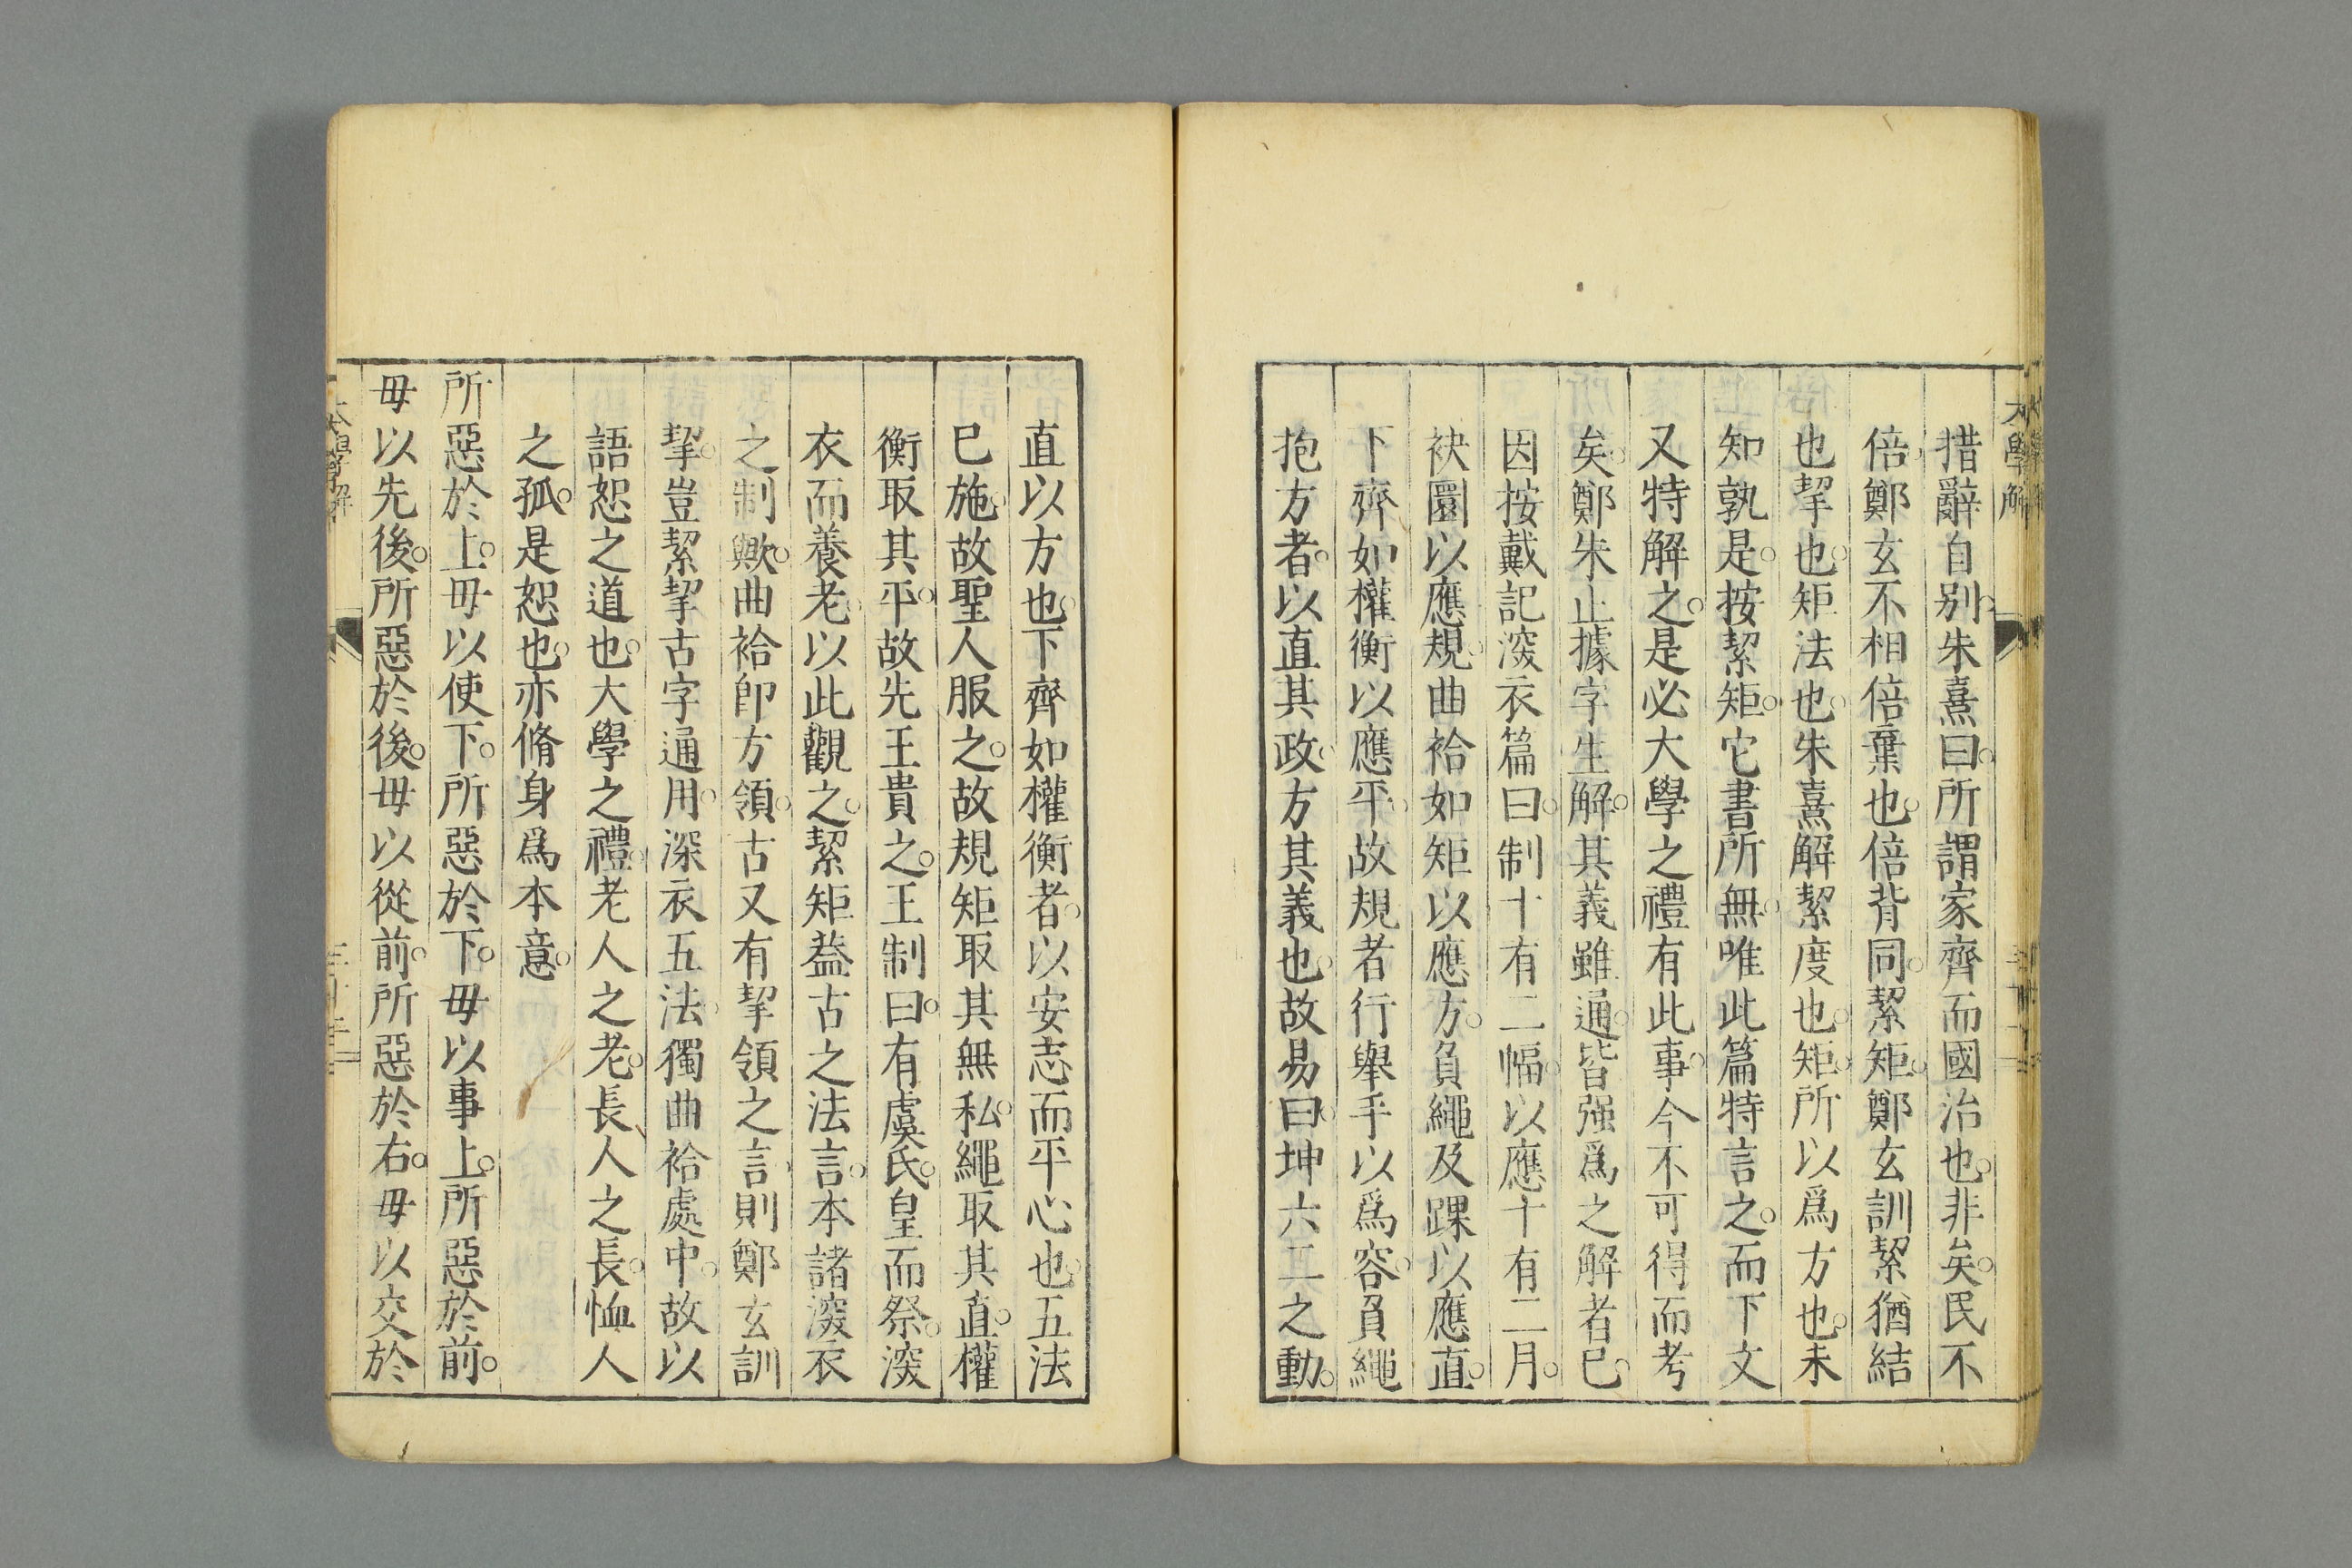 大學解
措辭自別。朱熹曰。所謂家齊而國治也。非矣。民不
倍。鄭玄不相倍棄也。倍背同。絜矩。鄭玄訓絜猶結
也挈也。矩法也。朱熹解絜度也。矩。所以爲方也。未
知孰是。按絜矩。它書所無。唯此篇特言之。而下文
又特解之。是必大學之禮有此事。今不可得而考
矣。鄭朱止據字生解。其義雖通。皆强爲之解者已。
因按戴記深衣篇曰。制十有二幅。以應十有二月。
袂圜以應規。曲袷如矩以應方。負繩及踝以應直。
下齊如權衡以應平。故規者行舉手以爲容。負繩
抱方者。以直其政。方其義也。故易曰。坤六二之動。
直以方也。下齊如權衡者。以安志而平心也。五法
已施。故聖人服之。故規矩取其無私。繩取其直。權
衡取其平。故先王貴之。王制曰。有虞氏。皇而祭。深
衣而養老。以此觀之。絜矩葢古之法言。本諸深衣
之制歟。曲袷卽方領。古又有挈領之言。則鄭玄訓
挈。豈絜挈古字通用。深衣五法。獨曲袷處中。故以
語恕之道也。大學之禮。老人之老。長人之長。恤人
之孤。是恕也。亦脩身爲本意。
所惡於上。毋以使下。所惡於下。毋以事上。所惡於前。
毋以先後。所惡於後。毋以從前。所惡於右。毋以交於
大學解